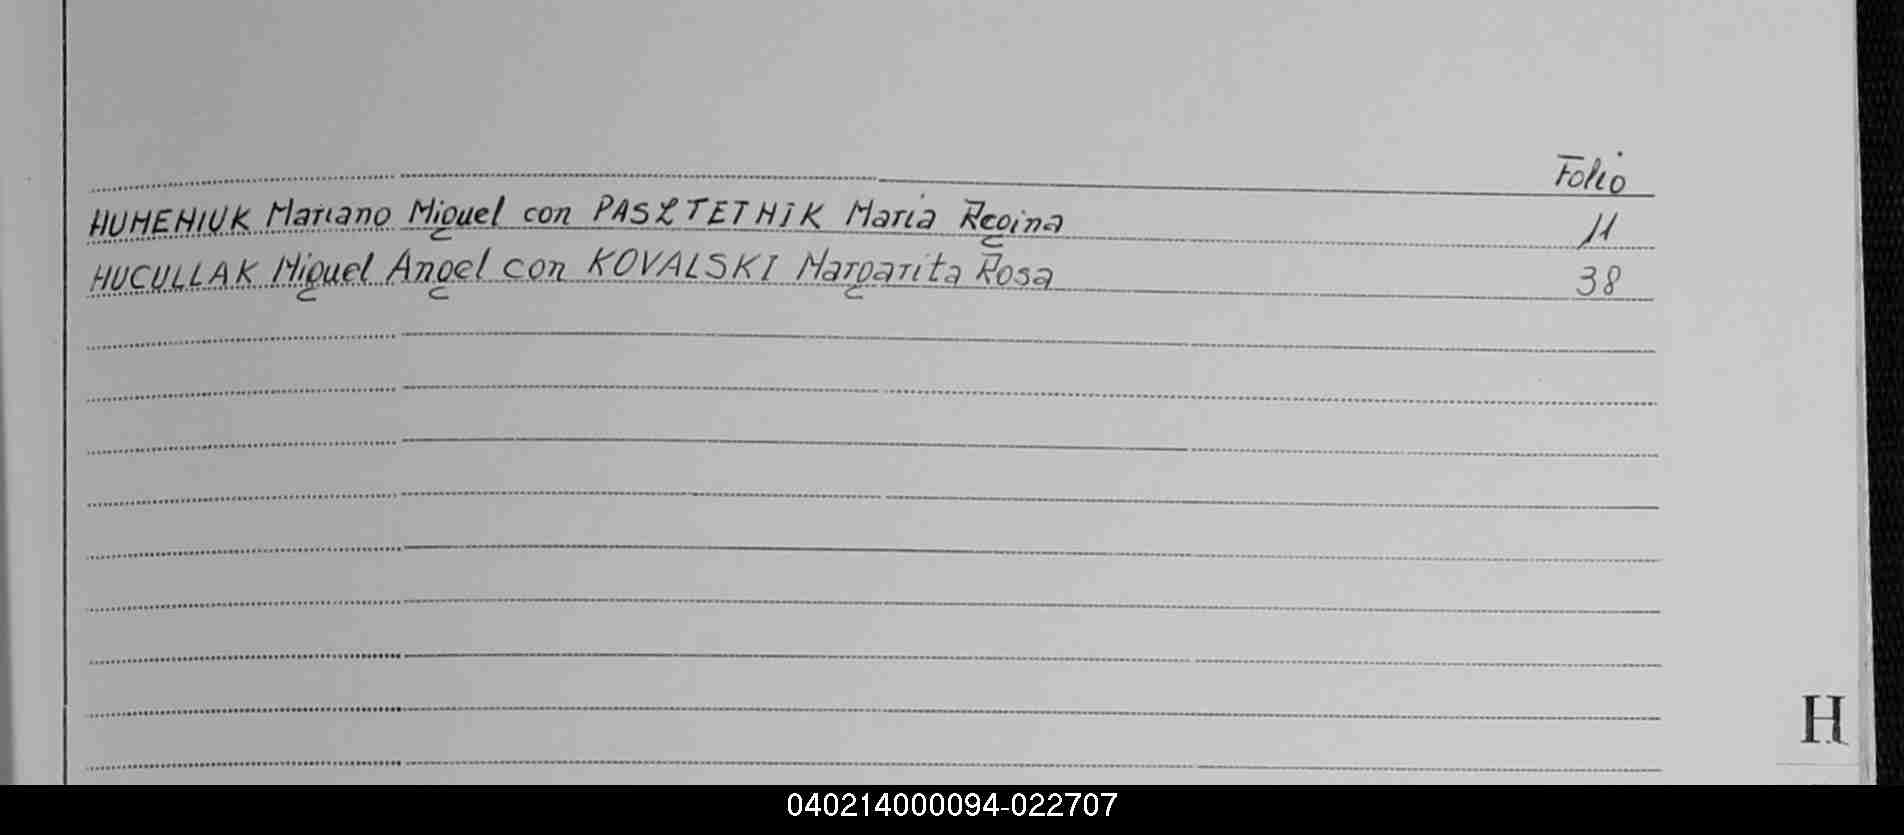 Folio
HUMENIUK Mariano Miguel con PASZTETNIK Maria Regina 11
HUCULLAK Miguel Angel con KOVALSKI Margarita Rosa 38
H
040214000094-022707